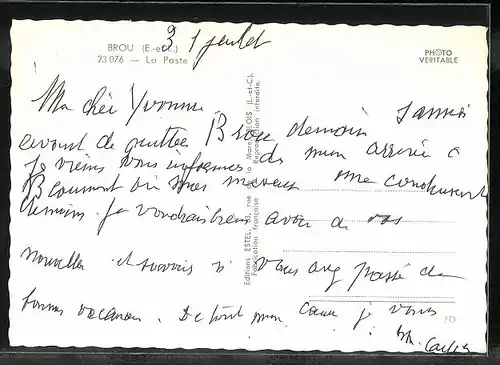 BROU (E.-et-L.)
23 076 — La Poste
PHOTO
VERITABLE
Ma chère Yvonne
avant de quitter Brou demain samedi
je viens vous informer de mon arrivée à
Beaumont où mes neveux me conduisent
demain. Je voudrais bien avoir de vos
nouvelles et savoir si vous avez passé de
bonnes vacances. De tout mon cœur je vous
Editions ESTEL, rue de la BLOIS (L.-et-C.)
Fabrication française Reproduction interdite.